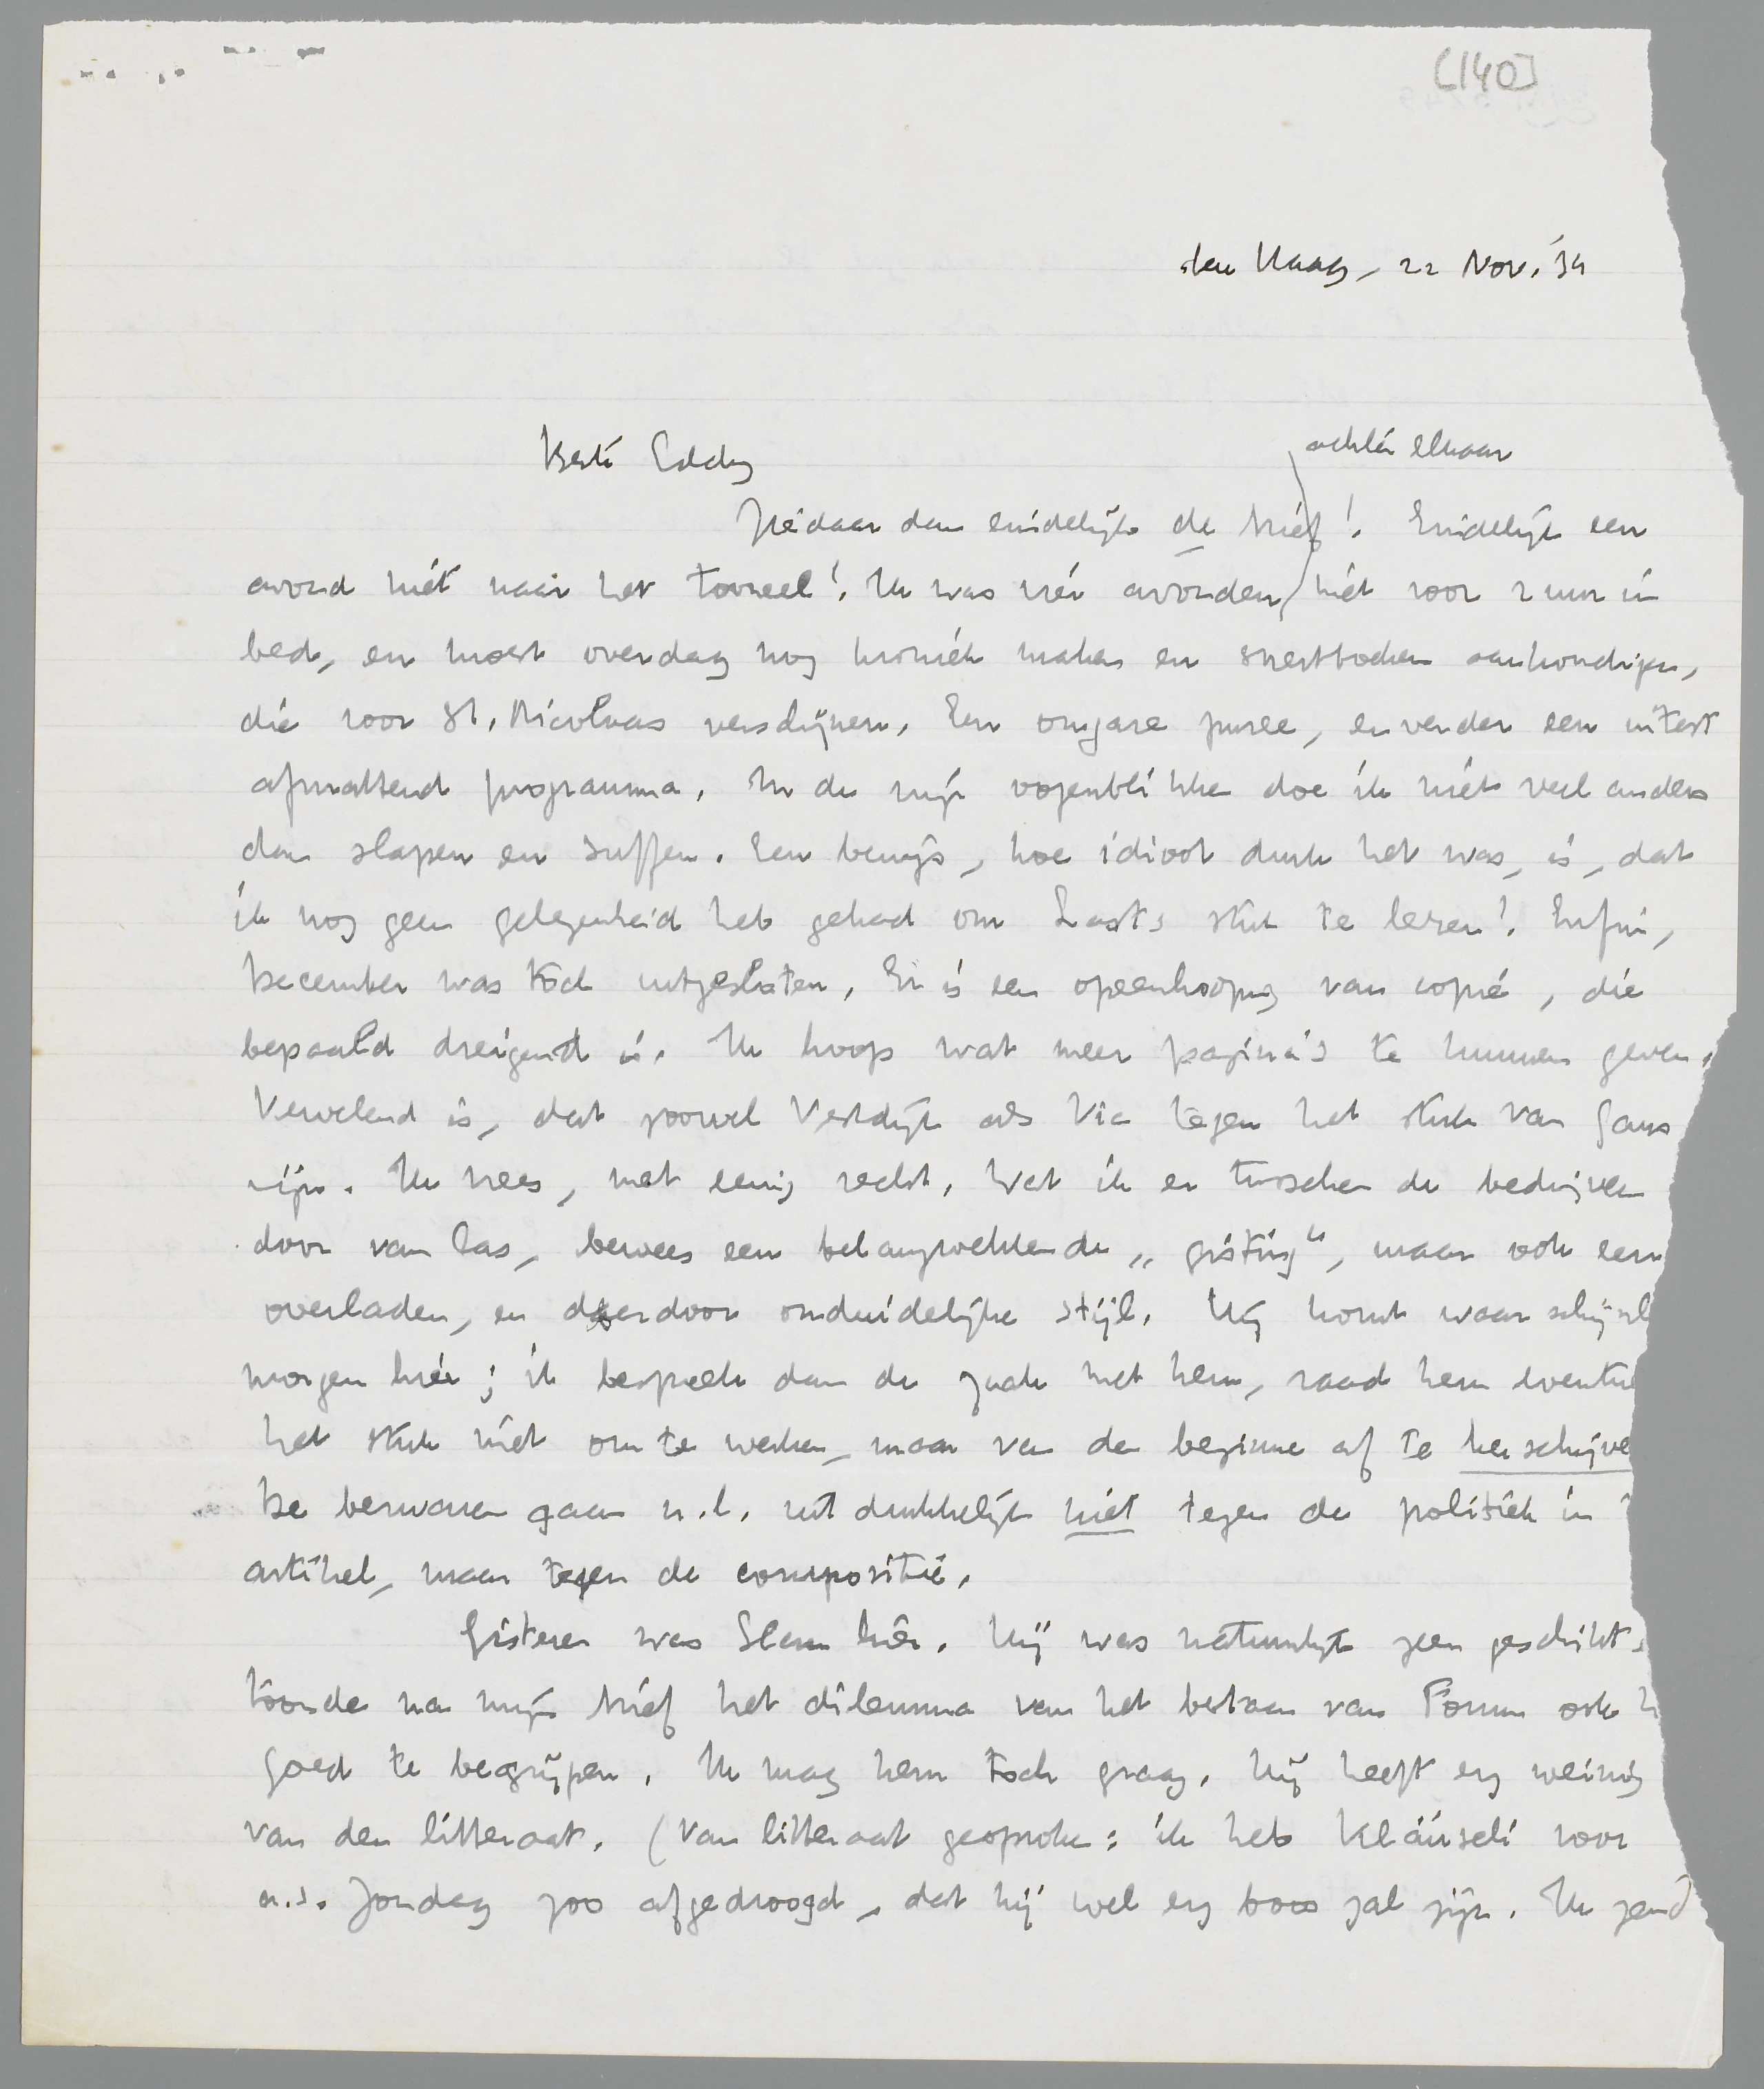 [140]
den Haag, 22 Nov. '34
Beste Eddy
achter elkaar
Ziedaar dan eindelijk de brief! Eindelijk een
avond niet naar het tooneel! Ik was vier avonden niet voor 2 uur in
bed, en moest overdag nog kroniek maken en snertboeken aankondigen,
die voor St. Nicolaas verschijnen. Een ongare puree, en verder een uiterst
afmattend programma. In de vrije oogenblikken doe ik niet veel anders
dan slapen en suffen. Een bewijs, hoe idioot druk het was, is, dat
ik nog geen gelegenheid heb gehad om Last's stuk te lezen! Enfin,
December was toch uitgesloten. Er is een opeenhooping van copie, die
bepaald dreigend is. Ik hoop wat meer pagina's te kunnen geven.
Vervelend is, dat zoowel Vestdijk als Vic tegen het stuk van Gans
zijn. Ik vrees, met eenig recht. Wat ik er tusschen de bedrijven
door van las, bewees een belangwekkende „gisting", maar ook een
overladen, en daardoor onduidelijke stijl. Hij komt waarschijnl
morgen hier; ik bespreek dan de zaak met hem, raad hem eventue
het stuk niet om te werken, maar van den beginne af te herschrijve
De bezwaren gaan n.l. uitdrukkelijk niet tegen de politiek in
artikel, maar tegen de compositie.
Gisteren was Slam hier. Hij was natuurlijk zeer geschikt,
toonde na mijn brief het dilemma van het bestaan van Forum ook h
goed te begrijpen. Ik mag hem toch graag. Hij heeft erg weinig
van den litteraat. (Van litteraat gesproken: ik heb Kläusli voor
a.s. Zondag zoo afgedroogd, dat hij wel erg boos zal zijn. Ik zend